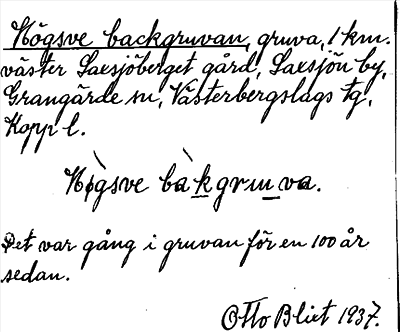 Högsve backgruvan, gruva, 1 km.
väster Saxsjöberget gård, Saxsjön by,
Grangärde sn, Västerbergslags tg,
Kopp l.
Hògsve bàkgruva.
Det var gång i gruvan för en 100 år
sedan.
Otto Blixt 1937.